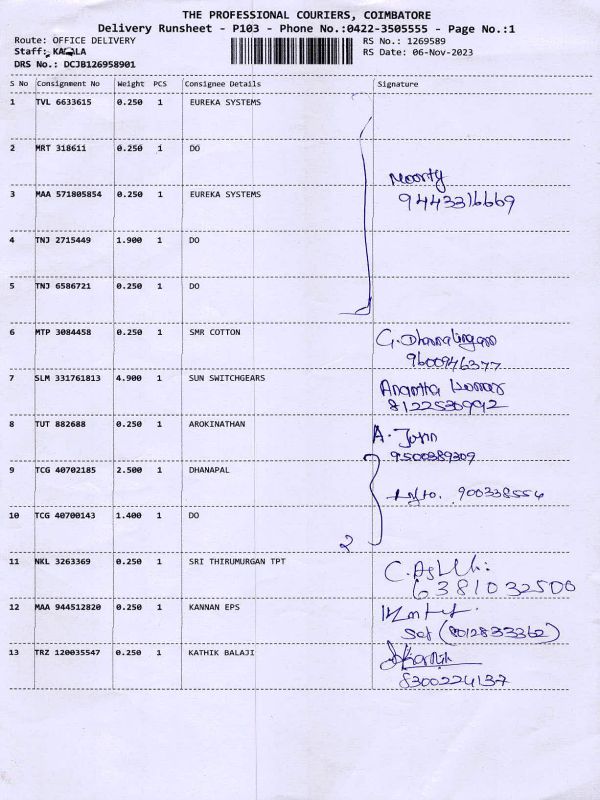 THE PROFESSIONAL COURIERS, COIMBATORE
Delivery Runsheet - P103 - Phone No.:0422-3505555 - Page No.:1
Route: OFFICE DELIVERY RS No.: 1269589
Staff: KAMALA RS Date: 06-Nov-2023
DRS No.: DCJB126958901
S No Consignment No Weight PCS Consignee Details Signature
1 TVL 6633615 0.250 1 EUREKA SYSTEMS
2 MRT 318611 0.250 1 DO
Moorty
3 MAA 571805854 0.250 1 EUREKA SYSTEMS
9443316669
4 TNJ 2715449 1.900 1 DO
5 TNJ 6586721 0.250 1 DO
6 MTP 3084458 0.250 1 SMR COTTON G. Dharmalingam
9600946377
7 SLM 331761813 4.900 1 SUN SWITCHGEARS Anantha Kumar
8122530992
8 TUT 882688 0.250 1 AROKINATHAN A. John
9500389309
9 TCG 40702185 2.500 1 DHANAPAL
900338554
10 TCG 40700143 1.400 1 DO
2
11 NKL 3263369 0.250 1 SRI THIRUMURGAN TPT
6381032500
12 MAA 944512820 0.250 1 KANNAN EPS
(8012833362)
13 TRZ 120035547 0.250 1 KATHIK BALAJI
8300224137